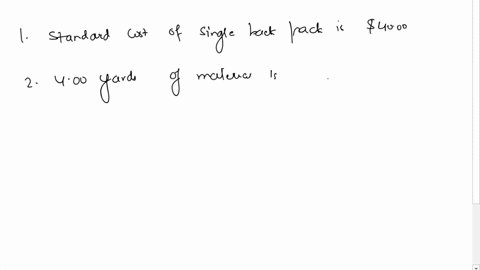 1. Standard cost of single back pack is $40.00
2. 4.00 yards of material is